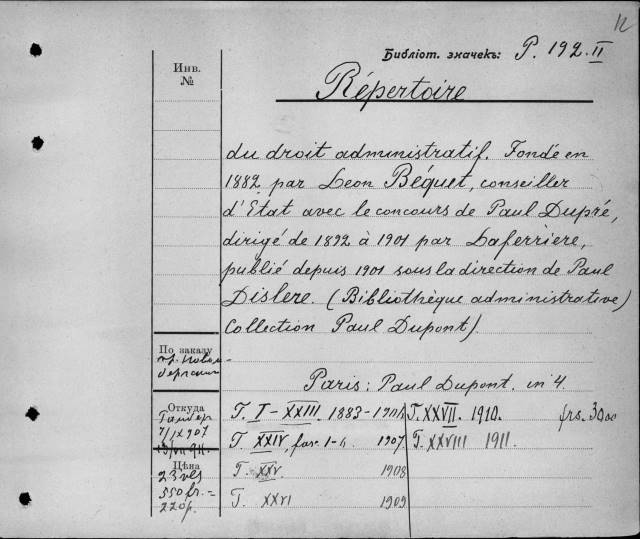 12
Библіот. значекъ: P. 192.II
Инв.
№
Répertoire
du droit administratif. Fondé en
1882 par Léon Béquet, conseiller
d'Etat avec le concours de Paul Dupré,
dirigé de 1892 à 1901 par Laferrière,
publié depuis 1901 sous la direction de Paul
Dislere. (Bibliothèque administrative)
Collection Paul Dupont).
По заказу
Paris: Paul Dupont. in 4.
Откуда
7/IX 907
T. I-XXIII. 1883-1906 T. XXVII. 1910. frs. 3000
T. XXIV, fasc. 1-4 1907 T. XXVIII 1911.
Цѣна
23 vls
550 fr. =
220 р.
T. XXV. 1908
T. XXVI 1909